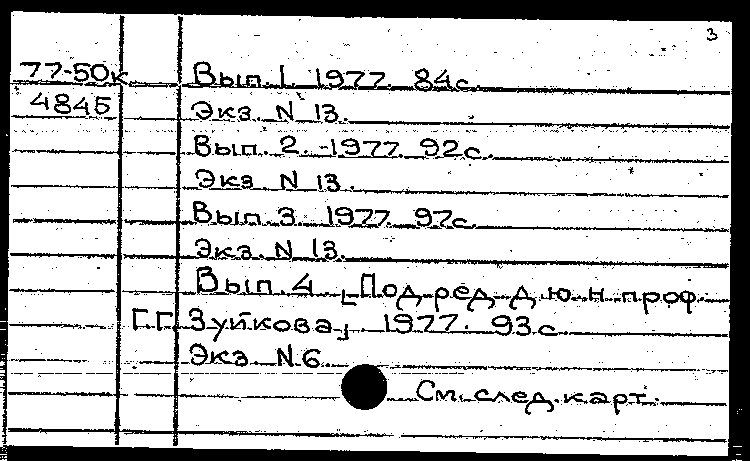 3
77-50к Вып. 1. 1977. 84с.
4845 Экз. N 13.
Вып. 2. -1977. 92с.
Экз. N 13.
Вып. 3. 1977. 97с.
Экз. N 13.
Вып. 4. [Под ред. д.ю.н. проф.
Г.Г. Зуйкова]. 1977. 93с.
Экз. N 6
См. след. карт.